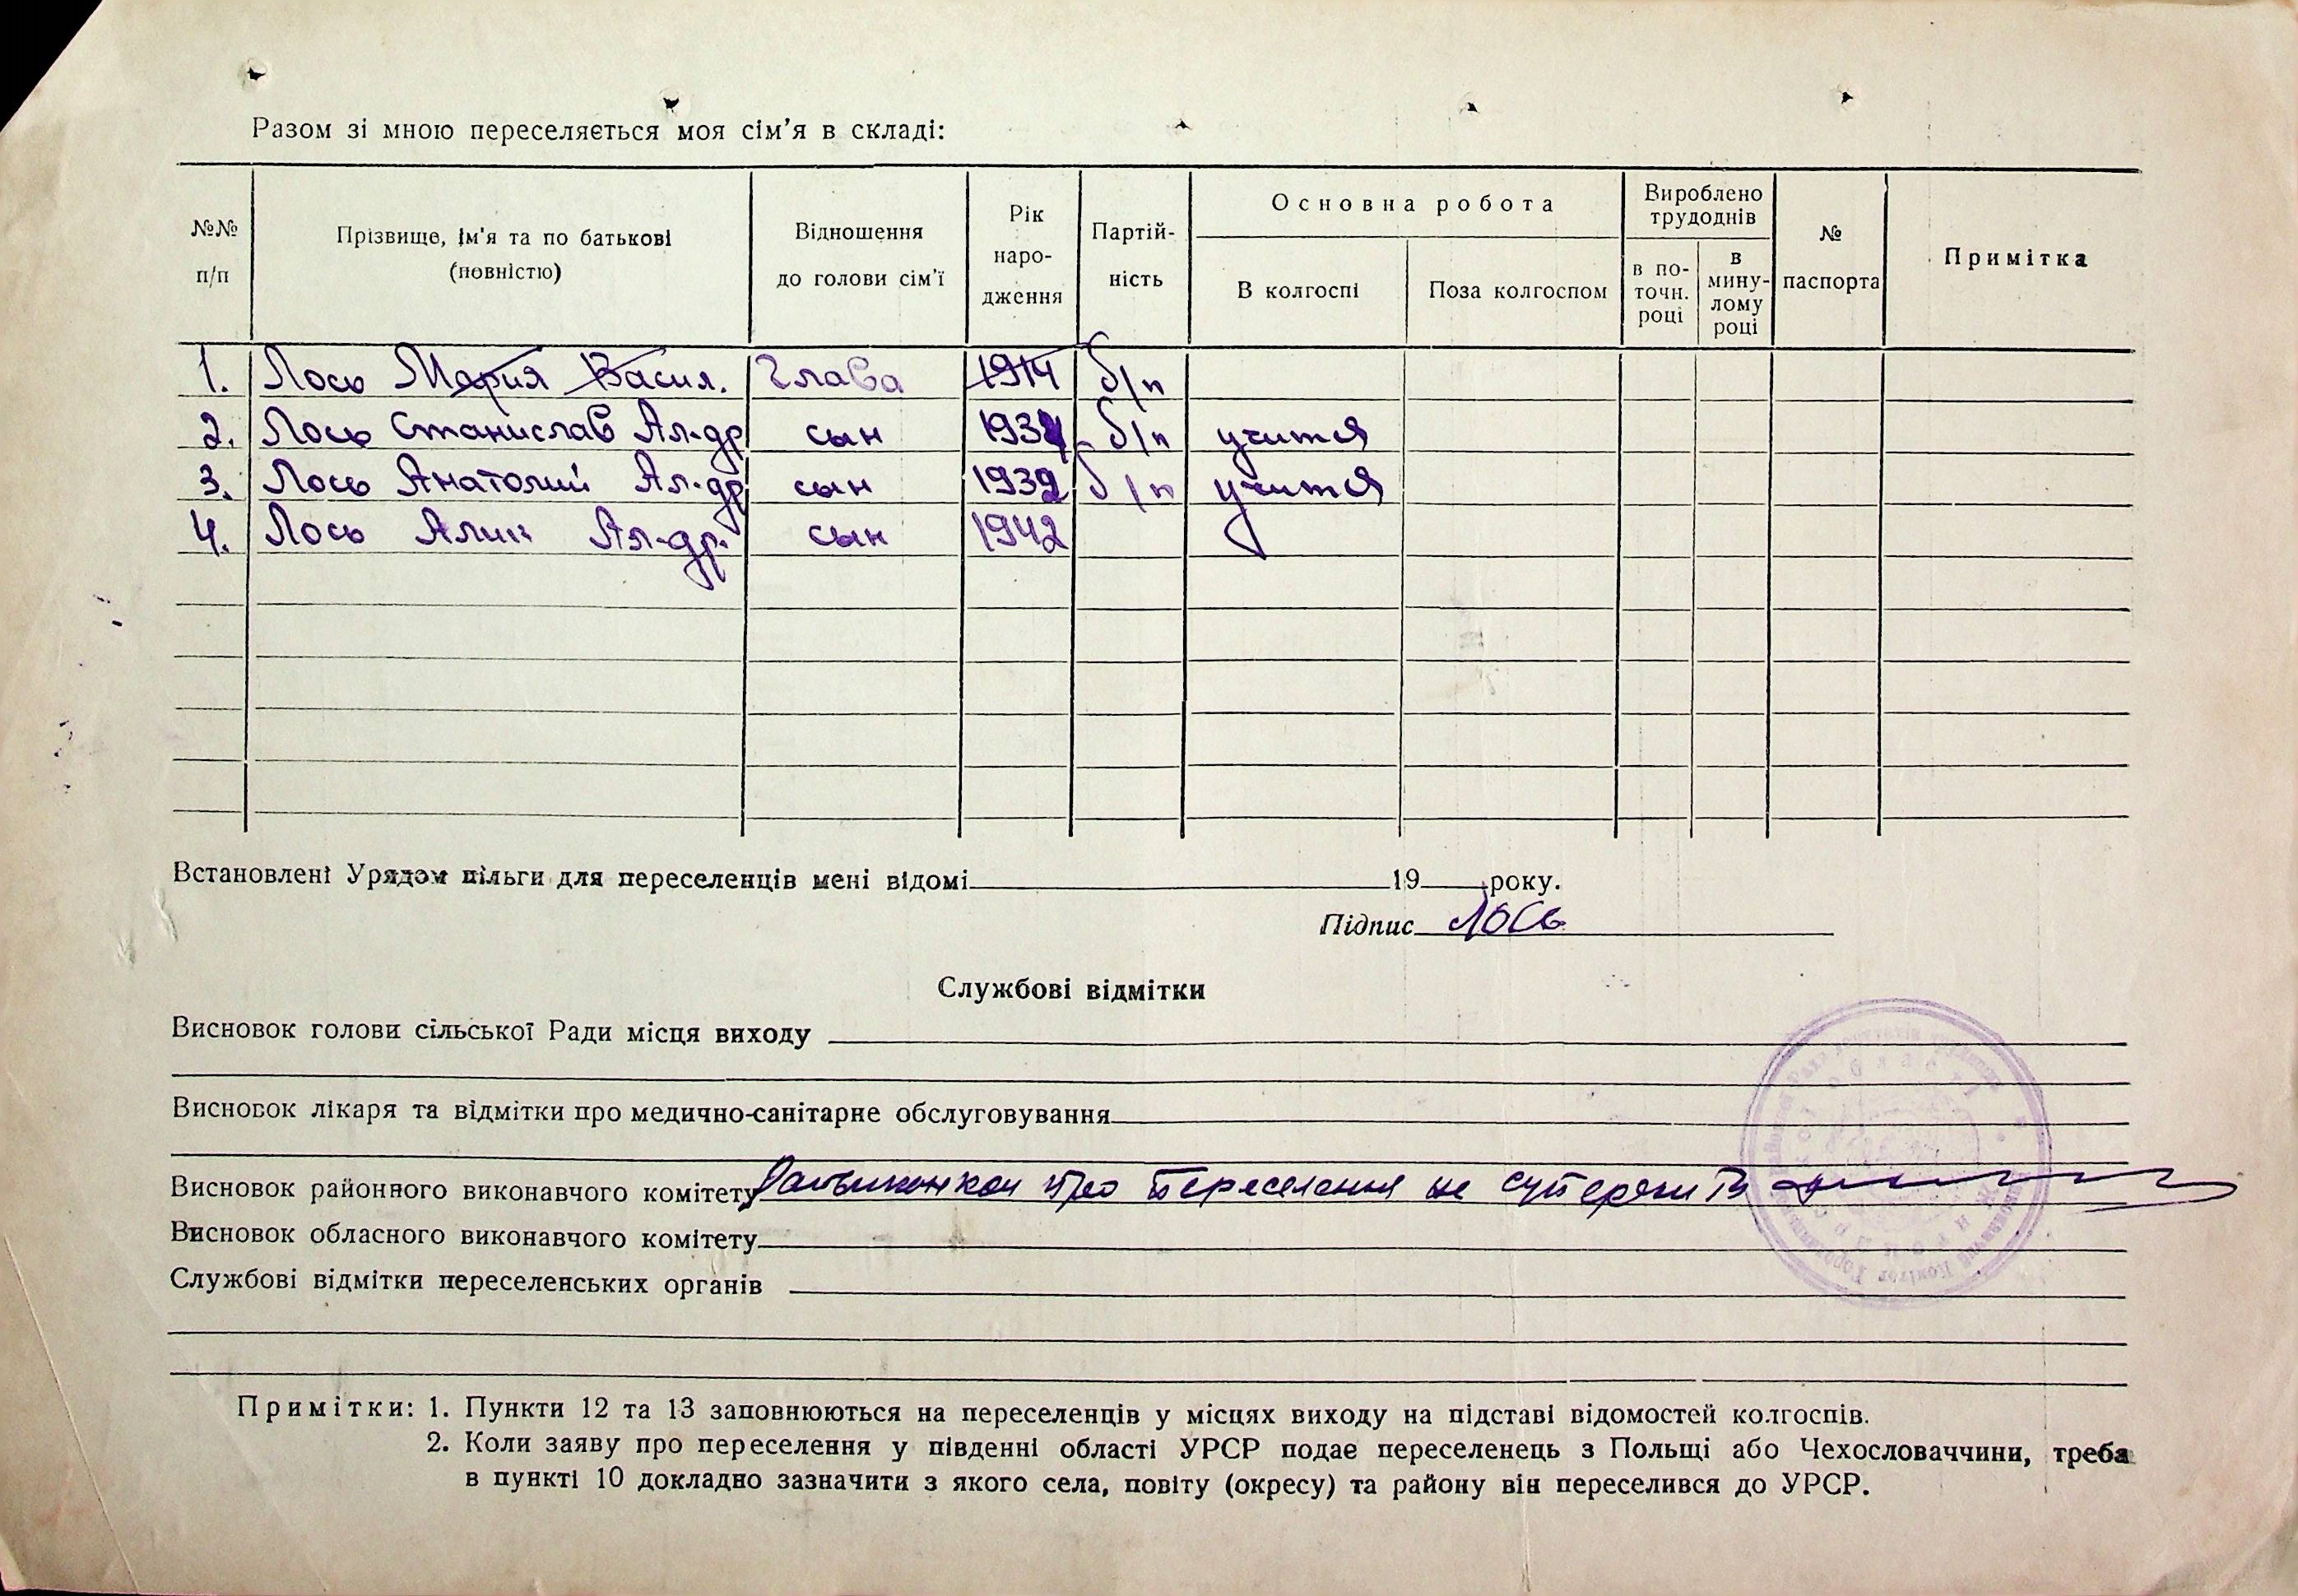 Разом зі мною переселяється моя сім'я в складі:
№№ п/п
Прізвище, ім'я та по батькові (повністю)
Відношення до голови сім'ї
Рік наро-дження
Партій-ність
Основна робота
В колгоспі
Поза колгоспом
Вироблено трудоднів
в по-точн. році
в мину-лому році
№ паспорта
Примітка
1. Лось Мария Васил. Глава 1914 б/п
2. Лось Станислав Ал-др сын 1934 б/п учится
3. Лось Анатолий Ал-др сын 1939 б/п учится
4. Лось Алик Ал-др. сын 1942
Встановлені Урядом пільги для переселенців мені відомі 19 року.
Підпис Лось
Службові відмітки
Висновок голови сільської Ради місця виходу
Висновок лікаря та відмітки про медично-санітарне обслуговування
Висновок районного виконавчого комітету про переселення не суперечить
Висновок обласного виконавчого комітету
Службові відмітки переселенських органів
Примітки: 1. Пункти 12 та 13 заповнюються на переселенців у місцях виходу на підставі відомостей колгоспів.
2. Коли заяву про переселення у південні області УРСР подає переселенець з Польщі або Чехословаччини, треба
в пункті 10 докладно зазначити з якого села, повіту (окресу) та району він переселився до УРСР.